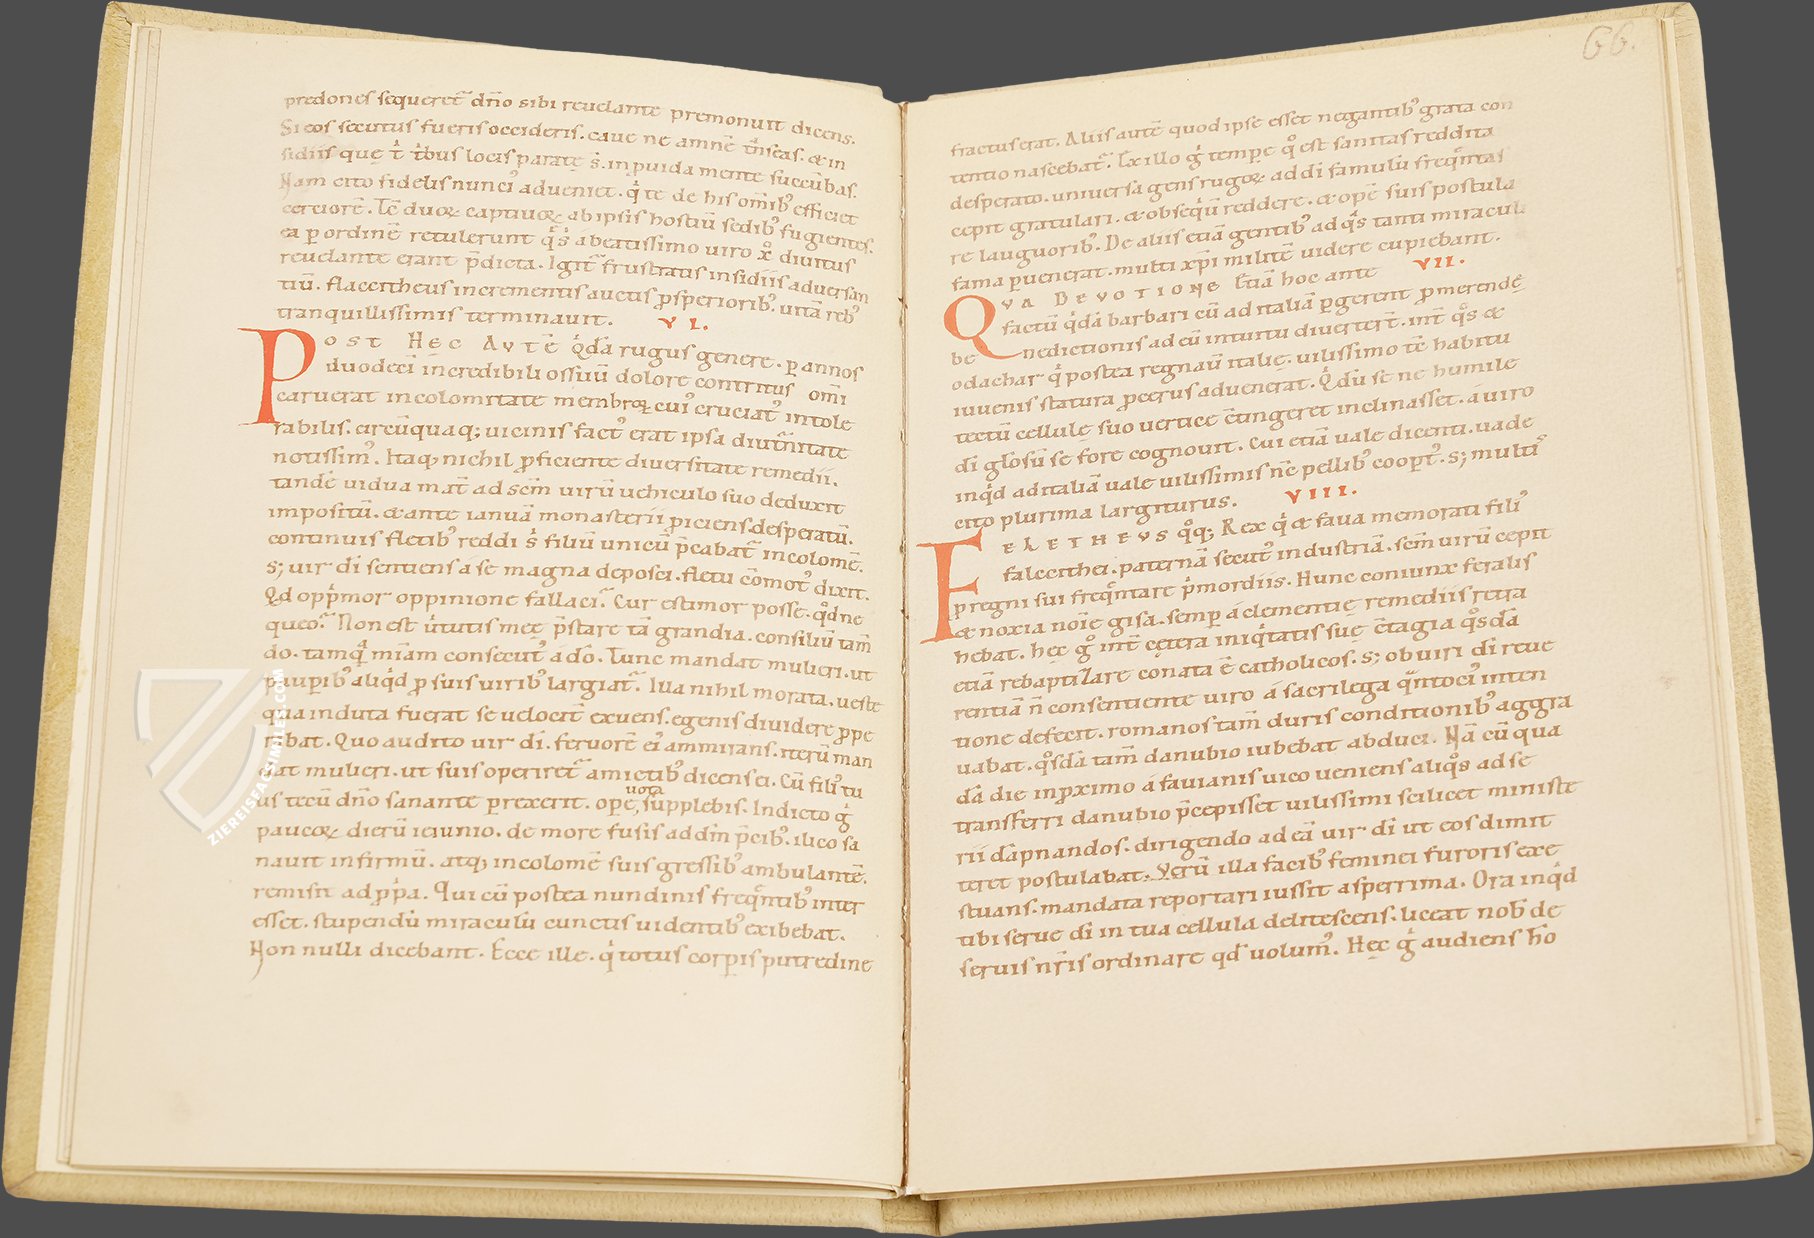 predones sequeret᷑ dn̄o sibi reuelante premonuit dicens.
Si eos secutus fueris occideris. caue ne amnē t̄nseas. & in
sidiis que t̄ t̄bus locis parate s̄. inpuida mente succūbas.
Nam cito fidelis nunci᾽ adueniet. q̇ te de his om̄ib᾽ efficiet
certiorē. Tc̄ duoꝝ captiuoꝝ ab ipsis hostiū sedib᾽ fugientes.
ea ꝑ ordinē retulerunt q̊s̄ a beatissimo uiro x̊ diuitus
reuelante erant p̄dicta. Igit᷑ frustratis insidiis aduersan
tiū. flaccitheus incrementis auctis ꝓsperiorib᾽ uitā reb᾽
tranquillissimis terminauit. VI.
Post Hec Avtē q̇dā rugus genere. ꝑ annos
duodeci̅ incredibili ossiuū dolore contritus om̄i
caruerat incolomitate membroꝝ cui᾽ cruciat᾽ intole
rabilis. circūquaq; uicinis fact᾽ erat ipsa diut̄nitate
notissim᾽. Itaq; nichil ꝓficiente diuersitate remedii.
tandē uidua mat̄ ad sc̄m uirū uehiculo suo deduxit
impositū. & ante ianuā monasterii ꝓiciens. desperatū.
continuis fletib᾽ reddi s̄ filiū unicū p̄cabat᷑ incolomē.
S; uir di̅ sentiens a se magna deposci. fletu cōmot᾽ dixit.
Qd opp̄mor oppinione fallaci᷑. Cur estimor posse. q̊d ne
queo᷑. Non est u̇tutis mee p̄stare tā grandia. consiliū tam̄
do. tamq̄ mi̅am consecut᾽ a do̅. Tunc mandat mulieri. ut
pauꝑib᾽ aliq̇d ꝓ suis uirib᾽ largiat᷑. Illa nihil morata. ueste
qua induta fuerat se uelocit̄ exuens. egenis diuidere ꝓpe
rabat. Quo audito uir di̅. feruorē ei᾽ ammirans. iterū man
dat mulieri. ut suis operiret᷑ amictib᾽ dicens ei. Cū fili᾽ tu
us tecū dn̄o sanante ꝑrexerit. ope, uota supplebis. Indicto g̊
paucoꝝ dierū ieiunio. de more fusis ad dm̄ p̄cib᾽. ilico sa
nauit infirmū. atq; incolomē suis gressib᾽ ambulantē.
remisit ad ꝓp̄a. Qui cū postea nundinis freq̄ntib᾽ inter
esset. stupendū miraculū cunctis uidentib᾽ exibebat.
Non nulli dicebant. Ecce ille. q̇ totus corꝑis putredine
66.
fractus erat. Aliis autē quod ipse esset negantib᾽ grata con
tentio nascebat᷑. Ex illo g̊ tempe q̊ est sanitas reddita
desperato. universa gens rugoꝝ ad di̅ famulū freq̄ntas
cepit gratulari. & obsequi̅ reddere. & opē suis postula
re languorib᾽. De aliis etiā gentib᾽ ad q̊s tanti miracul
fama ꝑuenerat. multi xp̄i militē uidere cupiebant.
VII.
Qva Devotione Etiā hoc ante
factū q̇dā barbari cū ad italiā ꝑgerent ꝓmerendę
be nedictionis ad eū intuitu diuerter̄t. int̄ q̊s &
odachar q̇ postea regnauit̄ italię. uilissimo tc̄ habitu
iuuenis statura ꝓcerus aduenerat. Q̇ dū se ne humile
tectū cellule suo uertice c̄tingeret inclinasset. a uiro
di̅ glo̅sū se fore cognouit. Cui etiā uale dicenti. uade
inq̇d ad italiā uade uilissimis nc̄ pellib᾽ cooꝑt᾽. s; mult᾽
cito plurima largiturus. VIII.
Feletheus q̊q; Rex q̇ & faua memorati fili᾽
falccithei. paternā secut᾽ industriā. sc̄m uirū cepit
p̄ regni sui freq̄ntare p̄mordiis. Hunc coniunx feralis
& noxia no̅ie gisa. semꝑ a clementię remediis retra
hebat. hęc g̊ int̄ cętera iniq̇tatis suę c̄tagia q̊sdā
etiā rebaptizare conata ē catholicos. s; ob uiri di̅ reue
rentiā n̄ consentiente uiro a sacrilega q̄ntoci᾽ inten
tione defecit. romanos tam̄ duris conditionib᾽ aggra
uabat. q̊sdā tam̄ danubio iubebat abduci. Nā cū qua
dā die in ꝓximo a fauianis uico ueniens aliq̊s ad se
transferri danubio p̄cepisset uilissimi scilicet ministe
rii dāpnandos. dirigendo ad eā uir di̅ ut eos dimit
teret postulabat. Verū illa facib᾽ feminei furoris exe
stuans. mandata reportari iussit asperrima. Ora inq̇d
tibi serue di̅ in tua cellula delitescens. liceat nob̄ de
seruis nr̄is ordinare qd̄ uolum᾽. Hęc g̊ audiens h̄o